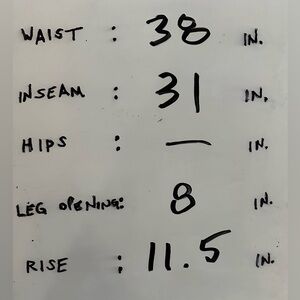 WAIST : 38 IN.
INSEAM : 31 IN.
HIPS : — IN.
LEG OPENING: 8 IN.
RISE : 11.5 IN.